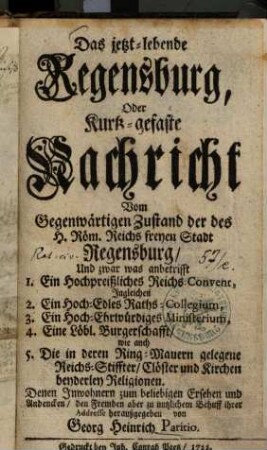 Das jetzt-lebende
Regensburg,
Oder
Kurtz-gefaste
Nachricht
Vom
Gegenwärtigen Zustand der des
H. Röm. Reichs freyen Stadt
Regensburg/
Und zwar was anbetrifft
1. Ein Hochpreißliches Reichs Convent,
Ingleichen
2. Ein Hoch-Edles Raths-Collegium,
3. Ein Hoch-Ehrwürdiges Ministerium,
4. Eine Löbl. Burgerschafft/
wie auch
5. Die in deren Ring-Mauern gelegene
Reichs-Stiffter/ Clöster und Kirchen
beyderley Religionen.
Denen Inwohnern zum beliebigen Ersehen und
Andencken/ den Fremden aber zu nutzlichem Behuff ihrer
Addresse herausgegeben von
Georg Heinrich Paritio.
Gedruckt bey Joh. Conrad Peez/ 1722.